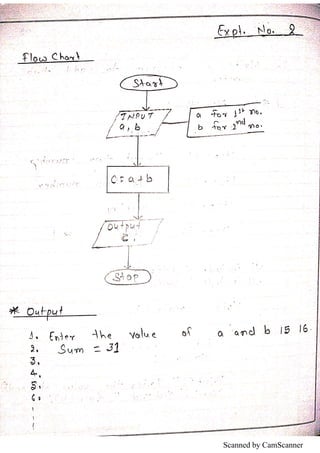 Expt. No. 2
Flow Chart
Start
INPUT
a, b
a for 1st no.
b for 2nd no.
C = a + b
Output
C
Stop
* Output
1. Enter the value of a and b 15 16
2. Sum = 31
3.
4.
5.
6.
Scanned by CamScanner